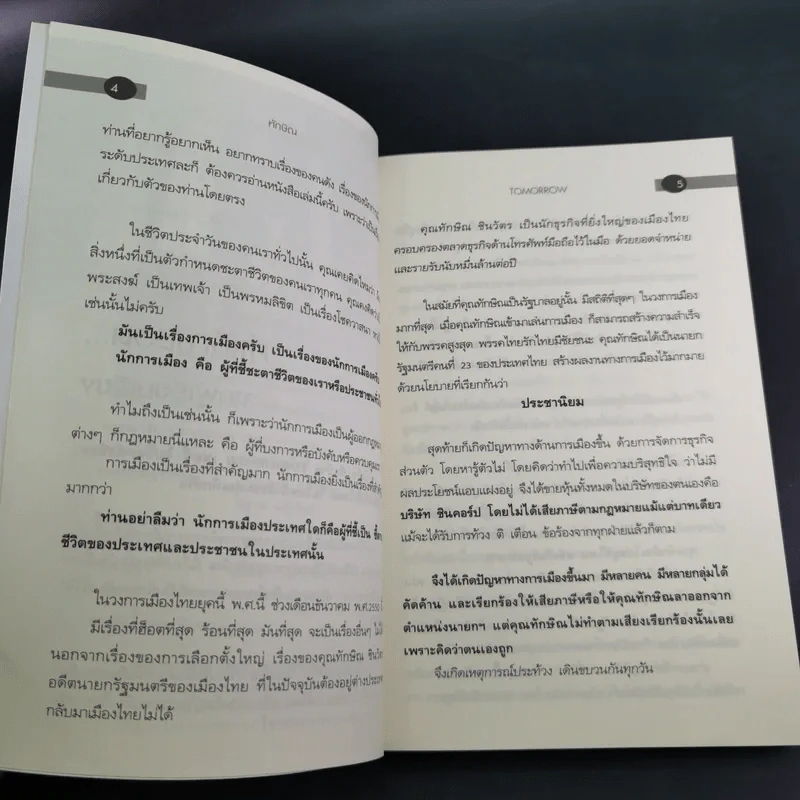 4
ทักษิณ
ท่านที่อยากรู้อยากเห็น อยากทราบเรื่องของคนดัง เรื่องของนักการ
ระดับประเทศละก็ ต้องควรอ่านหนังสือเล่มนี้ครับ เพราะว่าเป็น
เกี่ยวกับตัวของท่านโดยตรง
ในชีวิตประจำวันของคนเราทั่วไปนั้น คุณเคยคิดไหมว่า
สิ่งหนึ่งที่เป็นตัวกำหนดชะตาชีวิตของคนเราทุกคน คุณคงคิดว่า
พระสงฆ์ เป็นเทพเจ้า เป็นพรหมลิขิต เป็นเรื่องโชควาสนา
เช่นนั้นไม่ครับ
มันเป็นเรื่องการเมืองครับ เป็นเรื่องของนักการเมืองครับ
นักการเมือง คือ ผู้ที่ชี้ชะตาชีวิตของเราหรือประชาชน
ทำไมถึงเป็นเช่นนั้น ก็เพราะว่านักการเมืองเป็นผู้ออกกฎ
ต่างๆ ก็กฎหมายนี่แหละ คือ ผู้ที่บงการหรือบังคับหรือควบคุม
การเมืองเป็นเรื่องที่สำคัญมาก นักการเมืองยิ่งเป็นเรื่องที่
มากกว่า
ท่านอย่าลืมว่า นักการเมืองประเทศใดก็คือผู้ที่ชี้เป็น
ชีวิตของประเทศและประชาชนในประเทศนั้น
ในวงการเมืองไทยยุคนี้ พ.ศ.นี้ ช่วงเดือนธันวาคม พ.ศ.2550
มีเรื่องที่ฮ็อตที่สุด ร้อนที่สุด มันที่สุด จะเป็นเรื่องอื่นๆ
นอกจากเรื่องของการเลือกตั้งใหญ่ เรื่องของคุณทักษิณ ชินวัตร
อดีตนายกรัฐมนตรีของเมืองไทย ที่ในปัจจุบันต้องอยู่ต่างประเทศ
กลับมาเมืองไทยไม่ได้
TOMORROW
5
คุณทักษิณ ชินวัตร เป็นนักธุรกิจที่ยิ่งใหญ่ของเมืองไทย
ครอบครองตลาดธุรกิจด้านโทรศัพท์มือถือไว้ในมือ ด้วยยอดจำหน่าย
และรายรับนับหมื่นล้านต่อปี
ในสมัยที่คุณทักษิณเป็นรัฐบาลอยู่นั้น มีสถิติที่สุดๆ ในวงการเมือง
มากที่สุด เมื่อคุณทักษิณเข้ามาเล่นการเมือง ก็สามารถสร้างความสำเร็จ
ให้กับพรรคสูงสุด พรรคไทยรักไทยมีชัยชนะ คุณทักษิณได้เป็นนายก
รัฐมนตรีคนที่ 23 ของประเทศไทย สร้างผลงานทางการเมืองไว้มากมาย
ด้วยนโยบายที่เรียกกันว่า
ประชานิยม
สุดท้ายก็เกิดปัญหาทางด้านการเมืองขึ้น ด้วยการจัดการธุรกิจ
ส่วนตัว โดยหารู้ตัวไม่ โดยคิดว่าทำไปเพื่อความบริสุทธิ์ใจ ว่าไม่มี
ผลประโยชน์แอบแฝงอยู่ จึงได้ขายหุ้นทั้งหมดในบริษัทของตนเองคือ
บริษัท ชินคอร์ป โดยไม่ได้เสียภาษีตามกฎหมายแม้แต่บาทเดียว
แม้จะได้รับการท้วง ติ เตือน ข้อร้องจากทุกฝ่ายแล้วก็ตาม
จึงได้เกิดปัญหาทางการเมืองขึ้นมา มีหลายคน มีหลายกลุ่มได้
คัดค้าน และเรียกร้องให้เสียภาษีหรือให้คุณทักษิณลาออกจาก
ตำแหน่งนายกฯ แต่คุณทักษิณไม่ทำตามเสียงเรียกร้องนั้นเลย
เพราะคิดว่าตนเองถูก
จึงเกิดเหตุการณ์ประท้วง เดินขบวนกันทุกวัน